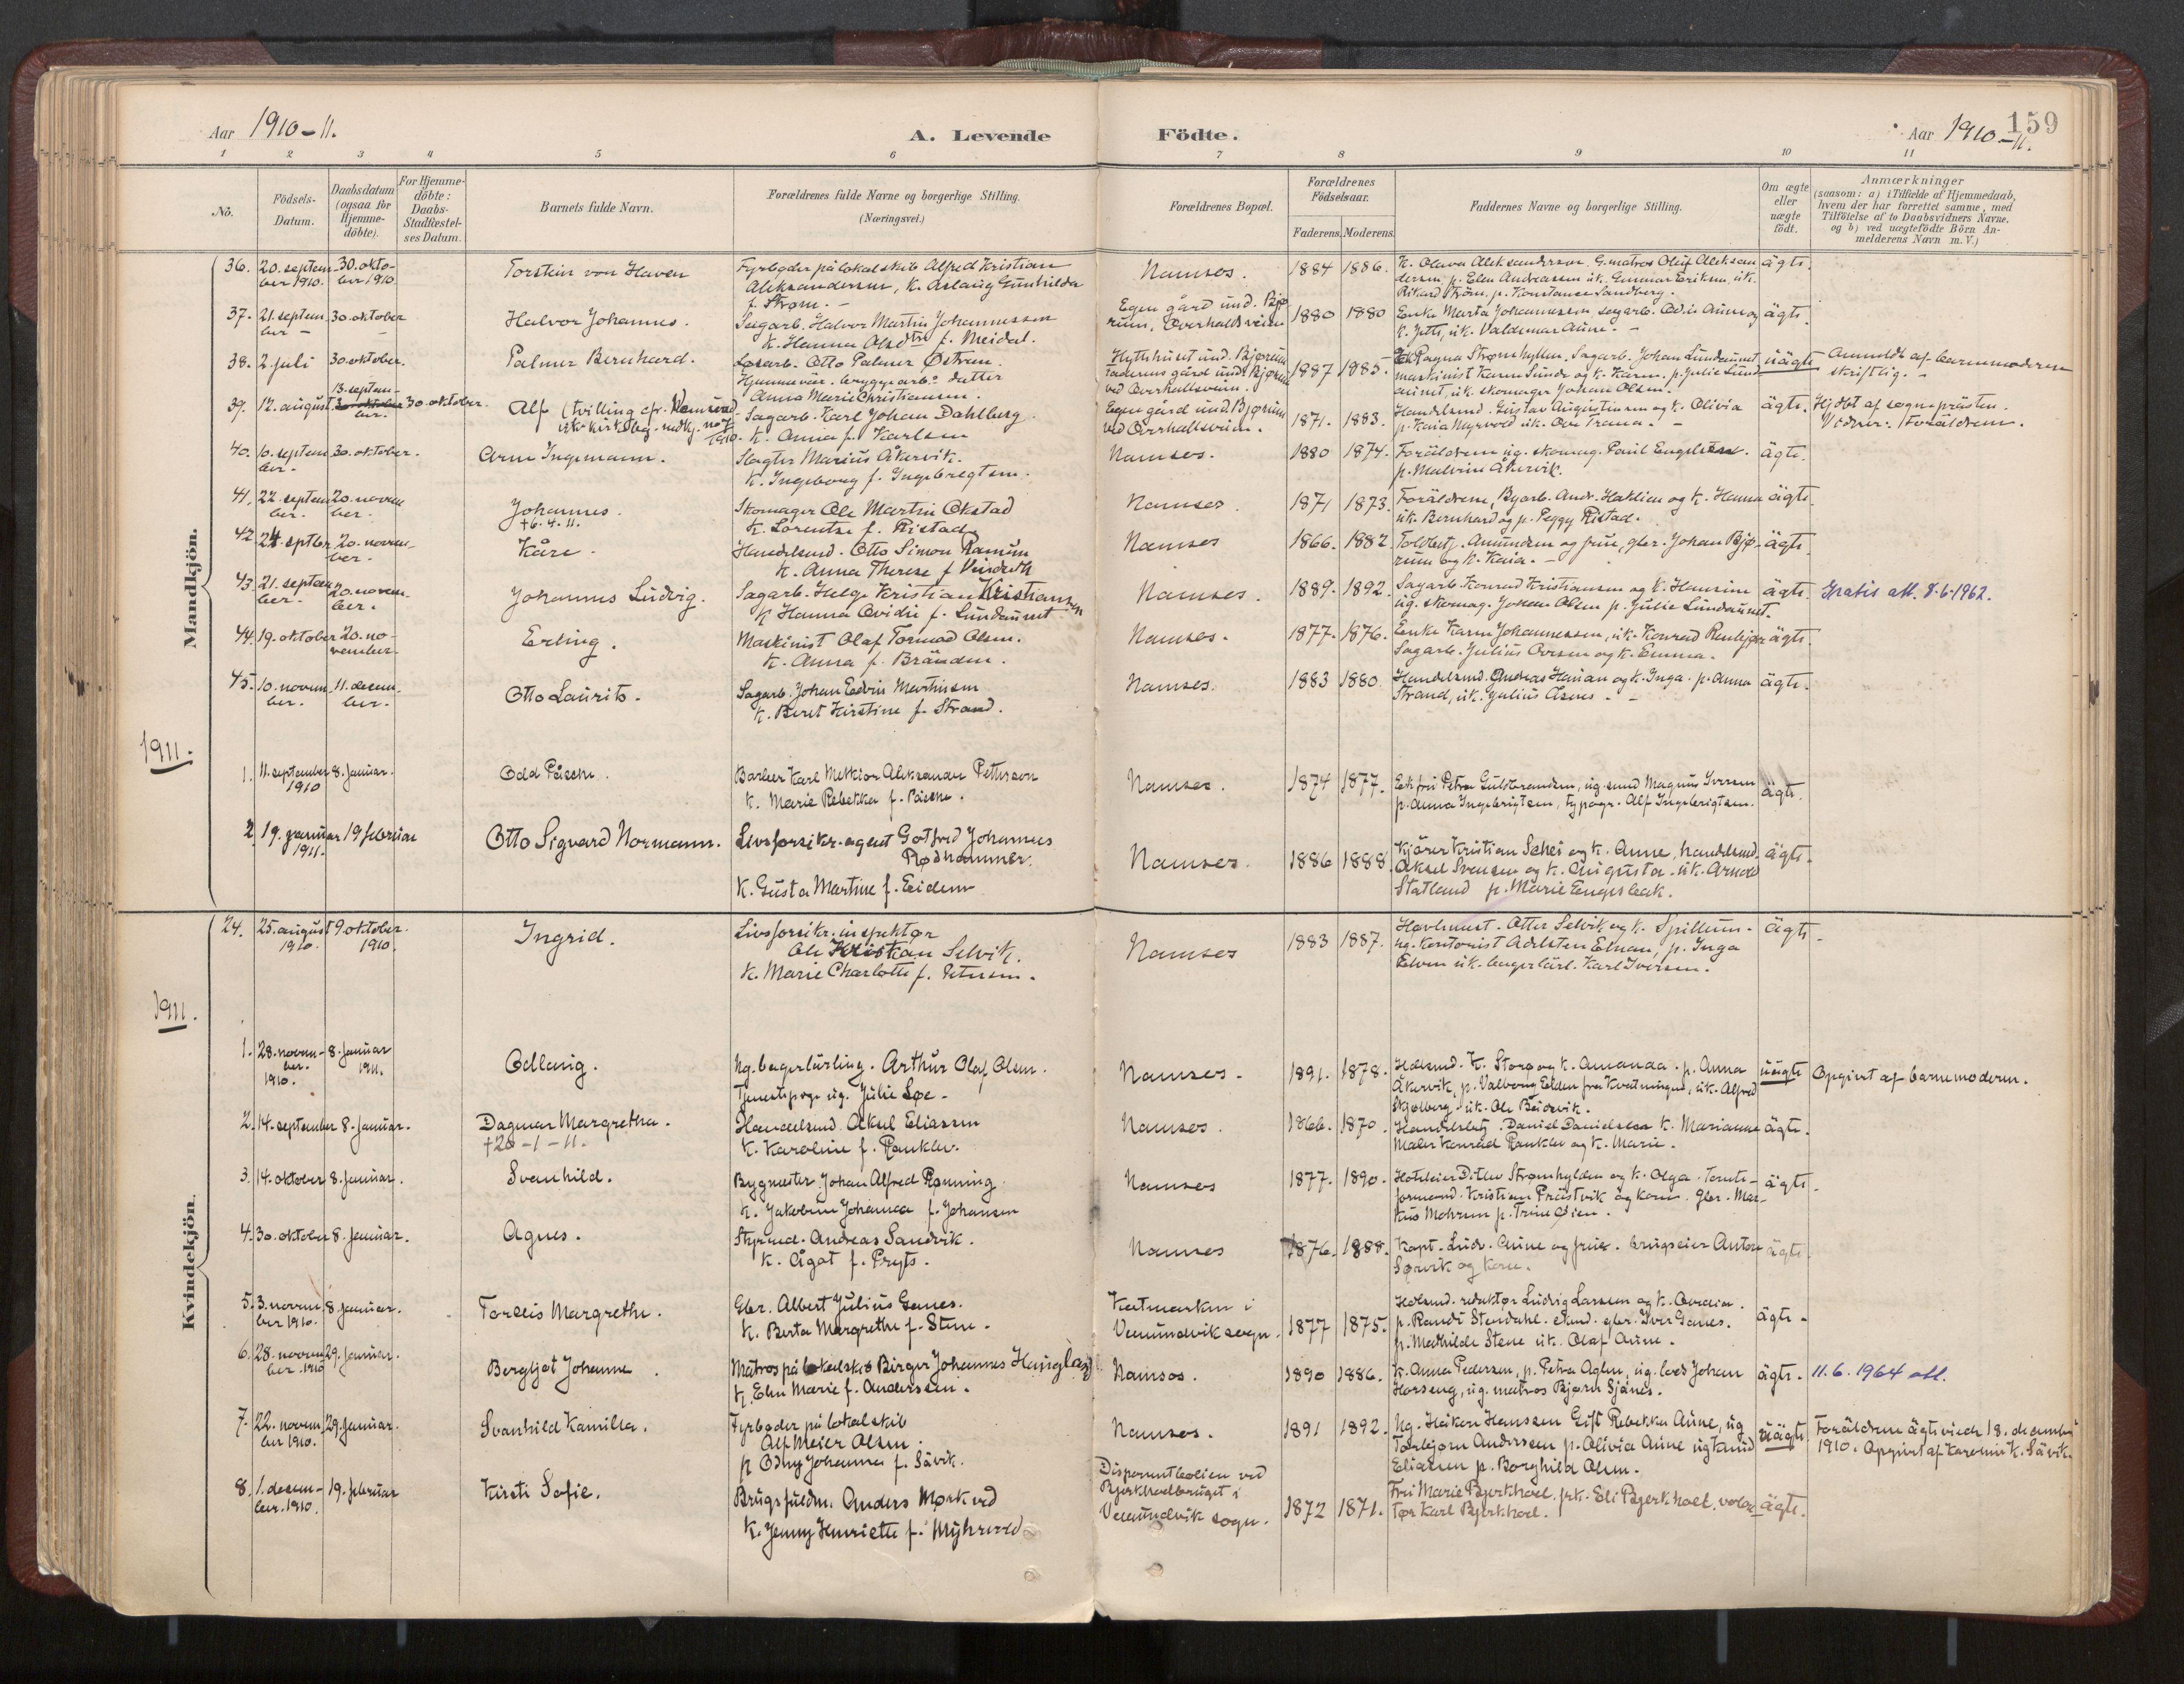 Aar 1910-11.
A. Levende
Födte.
Aar 1910-11.
159
1 2 3 4 5 6 7 8 9 10 11
No.
Födsels-
Datum.
Daabsdatum
(ogsaa for
Hjemme-
döbte).
For Hjemme-
döbte:
Daabs-
Stadfæstel-
ses Datum.
Barnets fulde Navn.
Forældrenes fulde Navne og borgerlige Stilling.
(Næringsvei.)
Forældrenes Bopæl.
Forældrenes
Födselsaar.
Faderens. Moderens.
Faddernes Navne og borgerlige Stilling.
Om ægte
eller
uægte
födt.
Anmærkninger
(saasom: a) i Tilfælde af Hjemmedaab,
hvem der har forrettet samme, med
Tilföielse af to Daabsvidners Navne.
og b) ved uægtefödte Börn An-
melderens Navn m.V.)
Mandkjön.
36. 20. septem- 30. okto-
ber 1910. ber 1910
Torstein von Haven
Fyrbøder på lokalskib Alfred Kristian
Aleksandersen, K. Aslaug Gunhilda
f. Strøm. -
Namsos. 1884 1886.
K. Olava Aleksandersen. G. matros Oluf Aleksan
dersen, p. Elen Andreassen uk. Gunnar Eriksen, uk.
Rikard Strøm, p. Konstanse Sandberg.
ägte.
37. 21. septem 30. oktober
ber -
Halvor Johannes.
Sagarb. Halvor Martin Johannessen
K. Hanna f. Meidal.
Egen gård und. Bjø
rum, Overhallsveien
1880 1880
Enke Marta Johannessen, sagarb. Odin Aune og
K. Jette, uk. Valdemar Aune. -
ägte.
38. 2. juli 30. oktober.
Palmer Bernhard.
Løsarb. Otto Palmer Østrem
Hjemmevär. bryggearb. datter
Anna Marie Christiansen.
Hyttehuset und. Bjørum
faderens gård und. Bjørum
ved Overhallsveien.
1887 1885.
Ragna Strømhyllen. Sagarb. Johan Lundaunet
maskinist Karen Lunde og K. Karen. p. Julie Lund
aunet, uk. skomager Johan Olsen.
uägte
Anmeldt af barnemoderen
skriftlig. -
39. 12. august 13. septem-
ber. 30. oktober.
Alf (tvilling cfr. kvindekj.
Sagarb. Karl Johan Dahlberg
K. Anna f. Karlsen
Egen gård und. Bjørum
ved Overhallsveien.
1871. 1883.
Handelsmd. Gustav Augustinsen og K. Olivia
p. Kaia Myrvold uk. Ove Trana. -
ägte.
Hjdbt af sogneprästen.
Vidner: Foräldrene.
40. 10. septem 30. oktober.
ber.
Arne Ingemann.
Slagter Marius Åkervik.
K. Ingeborg f. Ingebregtsen.
Namsos. 1880 1874.
Foräldrene ug. skomag. Paul Engelsen.
p. Malvine Åkervik.
ägte.
41. 22. septem 20. novem
ber. ber.
Johannes.
+6. 4. 11.
Skomager Ole Martin Okstad
K. Lorentse f. Ristad
Namsos 1871 1873.
Foräldrene, Byarb. Andr. Haklien og K. Hanna
uk. Bernhard og p. Peggy Ristad.
ägte.
42. 24. septbr. 20. novem-
ber.
Kåre.
Handelsmd. Otto Simon Ramum
K. Anna Therese f.
Namsos 1866. 1882.
Toldbetj. Amundsen og frue, gbr. Johan Bjø-
rum og K. Kaia. -
ägte.
43. 21. septem 20. novem-
ber. ber.
Johannes Ludvig.
Sagarb. Helge Kristian Kristiansen
K Hanna Ovidie f. Lundaunet
Namsos. 1889. 1892.
Sagarb. Konrad Kristiansen og K. Hansine
ug. skomag. Johan Olsen p. Julie Lundaunet.
ägte.
Gratis att. 8.6.1962.
44. 19. oktober 20. no-
vember.
Erling.
Maskinist Olaf Tormod Olsen.
K. Anna f. Brånden.
Namsos. 1877. 1876.
Enke Karen Johannessen, uk. Konrad Renbjør
Sagarb. Julius Ovesen og K. Emma.
ägte.
45. 10. novem 11. desem.
ber. ber.
Otto Laurits.
Sagarb. Johan Edvin Martinsen
K. Beret Kirstine f. Strand.
Namsos. 1883 1880
Handelsmd. Andreas Hanan og K. Inga. p. Anna
Strand, uk. Julius Åsnes. -
ägte.
1911.
1. 11. september 8. januar.
1910
Odd Påsche.
Barber Karl Melkior Aleksander Petterson
K. Marie Rebekka f. Påsche.
Namsos. 1874 1877.
Enkefru Petra Guldbrandsen, ug. smed Magnus Iversen
p. Anna Ingebrigtsen, typogr. Alf Ingebrigtsen.
ägte.
2. 19. januar 19 februar
1911.
Otto Sigvard Normann.
Livsforsikr. agent Gotfred Johannes
Rødhammer.
K. Gusta Martine f. Eidem
Namsos. 1886 1888.
Kjører Kristian Schei og K. Anne, handelsmd.
Aksel Svensen og K. Augusta. uk. Arnold
Statland p. Marie Engesbak.
ägte.
Kvindekjön
24. 25. august 9. oktober.
1910. 1910.
Ingrid.
Livsforsikr. inspektør
Ole Kristian Selvik.
K. Marie Charlotte f. Petersen.
Namsos 1883 1887.
Høvlmest. Otter Selvik og K. Spillum.
ug. kontorist Adelsten Elnan, p. Inga
Elven uk. bagerlärl. Karl Iversen.
ägte.
1911.
1. 28. novem- 8. januar
ber. 1911.
1910.
Odlaug.
Ug. bagerlärling. Arthur Olaf Olsen.
Tjenestepige ug. Julie Løe -
Namsos. 1891. 1878.
Hdlsmd. K. Storø og K. Amanda. p. Anna
Åkervik, p. Valborg Elden fra Kvatningen, uk. Alfred
Skjølberg. uk. Ole Beidevik.
uägte
Opgivet af barnemoderen.
2. 14. september 8. januar.
Dagmar Margretha.
+26 - 1 - 11.
Handelsmd. Aksel Eliassen
K. Karoline f. Ranklev.
Namsos. 1866. 1870.
Handelsbetj. Daniel Danielsen K. Marianne
Maler Konrad Ranklev og K. Marie.
ägte.
3. 14. oktober 8. januar.
Svanhild.
Bygmester Johan Alfred Rønning
K. Jakobine Johanna f. Johansen
Namsos 1877. 1890.
Hoteleier Ditlev Strømhylden og K. Olga. Tomte-
formand. Kristian Præstvik og kone. gbr. Mar-
kus Mohrum p. Trine Øien.
ägte.
4. 30. oktober 8. januar.
Agnes.
Styrmd. Andreas Sandvik.
K. Ågot f. Pryts.
Namsos 1876. 1888.
Kapt. Ludv. Aune og frue. brugseier Anton
Sørvik og kone.
ägte.
5. 3. novem 8. januar.
ber 1910.
Tordis Margrethe.
Gbr. Albert Julius Ganes.
K. Berta Margrethe f. Stene.
Kaldmarken i
Vemundvik sogn.
1877 1875.
Hdlsmd. redaktør Ludvig Larssen og K. Ovedia.
p. Randi Stendahl. stud. gbr. Iver Ganes.
p. Mathilde Stene uk. Olaf Aune.
ägte.
6. 28. novem 29. januar.
ber. 1910
Bergljot Johanne
Matros på lokalskib Birger Johannes Hauglan
K. Elen Marie f. Anderssen.
Namsos. 1890 1886.
K. Anna Pedersen, p. Petra Aglen, ug. lods Johan
Horseng, ug. matros Bjarn Sjånes.
ägte.
11.6.1964 att.
7. 22. novem 29. januar.
ber 1910.
Svanhild Kamilla.
Fyrbøder på lokalskib
Alf Meier Olsen.
p Odny Johanna f. Sävik.
Namsos. 1891 1892.
Ug. Håkon Hanssen Gift Rebekka Aune, ug
Torbjørn Anderssen p. Olivia Aune ug
Eliassen p. Borghild Olsen.
uägte
Foräldrene ägteviede 18. desember
1910. Opgivet af Karoline K. Sävik.
8. 1. desem- 19. februar
ber. 1910.
Kirsti Sofie.
Brugsfuldm. Anders Mørkved
K. Jenny Henriette f. Myhrvold
Disponentbolien ved
Bjerkhoelbruget i
Vemundvik sogn.
1872 1871.
Fru Marie Bjerkhoel, frk. Eli Bjerkhoel,
Karl Bjerkhoel.
ägte.